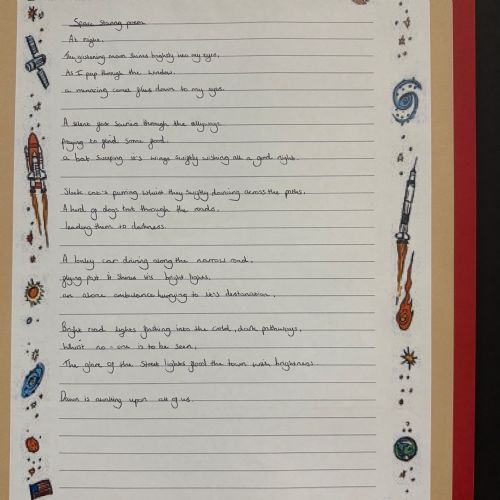 Space Staring poem
At night,
The glistening moon shines brightly into my eyes,
As I peep through the window.
a menacing comes flies down to my eyes.
A silent fox Scurries through the alleyways
trying to find some food.
a bat Sweeping it's wings swiftly wishing all a good night.
Sleek cat's purring whilst they swiftly across the paths.
A herd of dogs trot through the roads.
leading them to darkness.
A lonely car driving along the narrow road,
flying past it shines it's bright lights.
an above ambulance hurrying to it's destination.
Bright road lights flashing into the cold, dark pathways,
Whilst no-one is to be seen,
The glare of the Street lights flood the town with brightness.
Dawn is awaiting upon all of us.